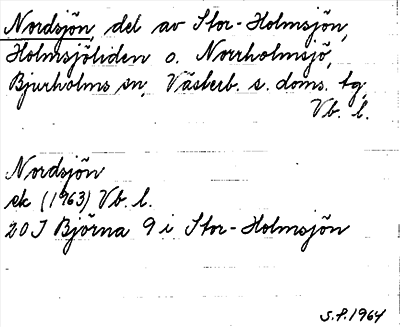 Nordsjön, del av Stor-Holmsjön,
Holmsjöliden o. Norrholmsjö,
Bjurholms sn, Västerb. s. doms. tg,
Vb. l.
Nordsjön
ek (1963) Vb. l.
20J Björna 9 i Stor-Holmsjön
S.P. 1964